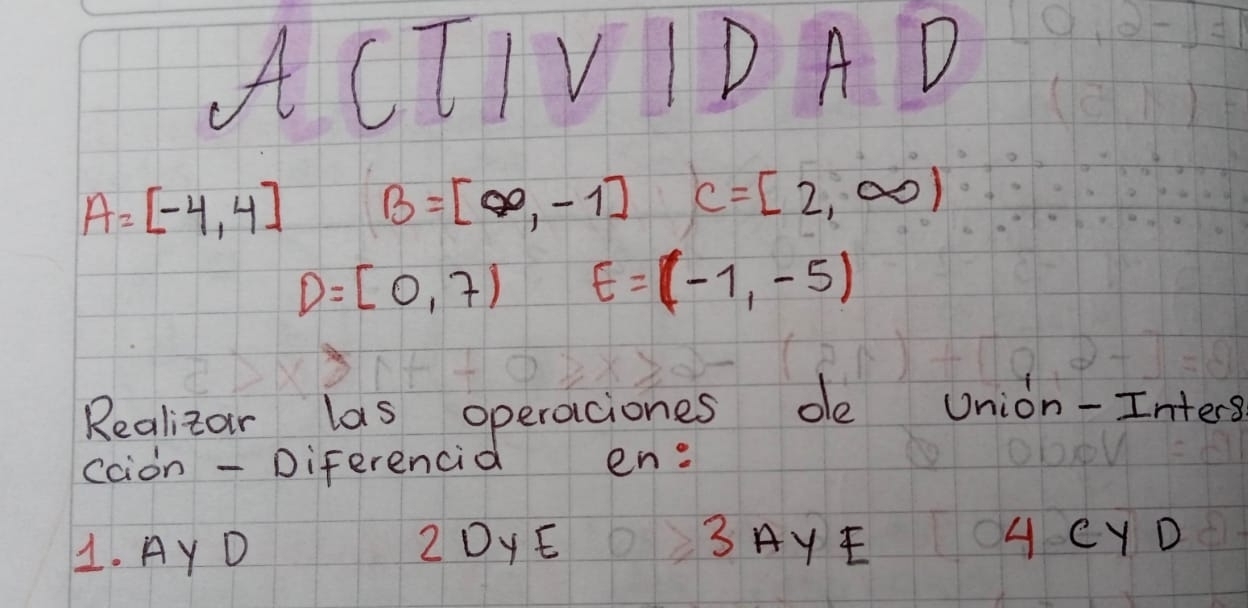 ACTIVIDAD
A=[-4,4] B=[∞,-1] C=[2, ∞)
D=[0,7) E=(-1,-5)
Realizar las operaciones de Unión - Inters
cción - Diferencia en:
1. A y D 2 D y E 3 A y E 4 C y D